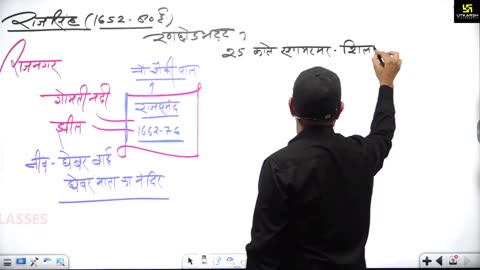 राजसिंह (1652-80ई)
रणछोडभट्ट 7
25 काले संगमरमर - शिला
राजनगर
नौ चौकी पाल
गोमती नदी
राजसमंद
झील
1662-76
नीव - घेवर बाई
घेवर माता का मंदिर
CLASSES
UTKARSH